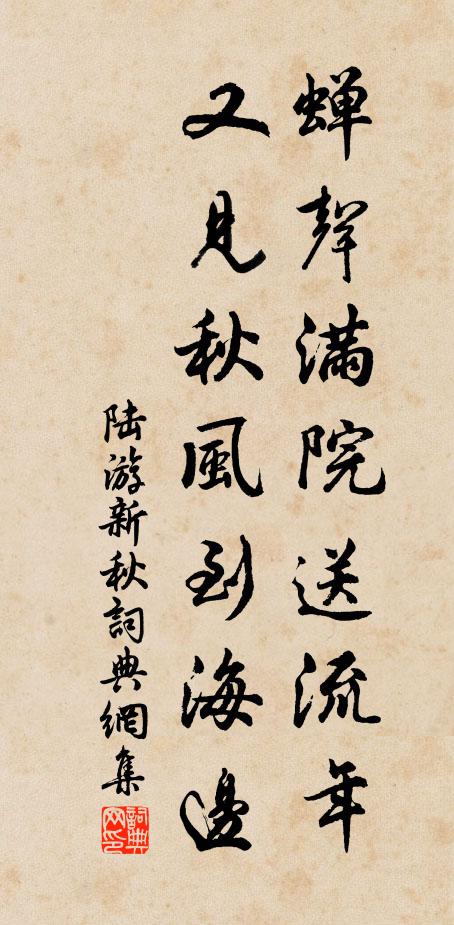 蟬聲滿院送流年
又見秋風到海邊
陸游新秋詞典網集
詞典網印